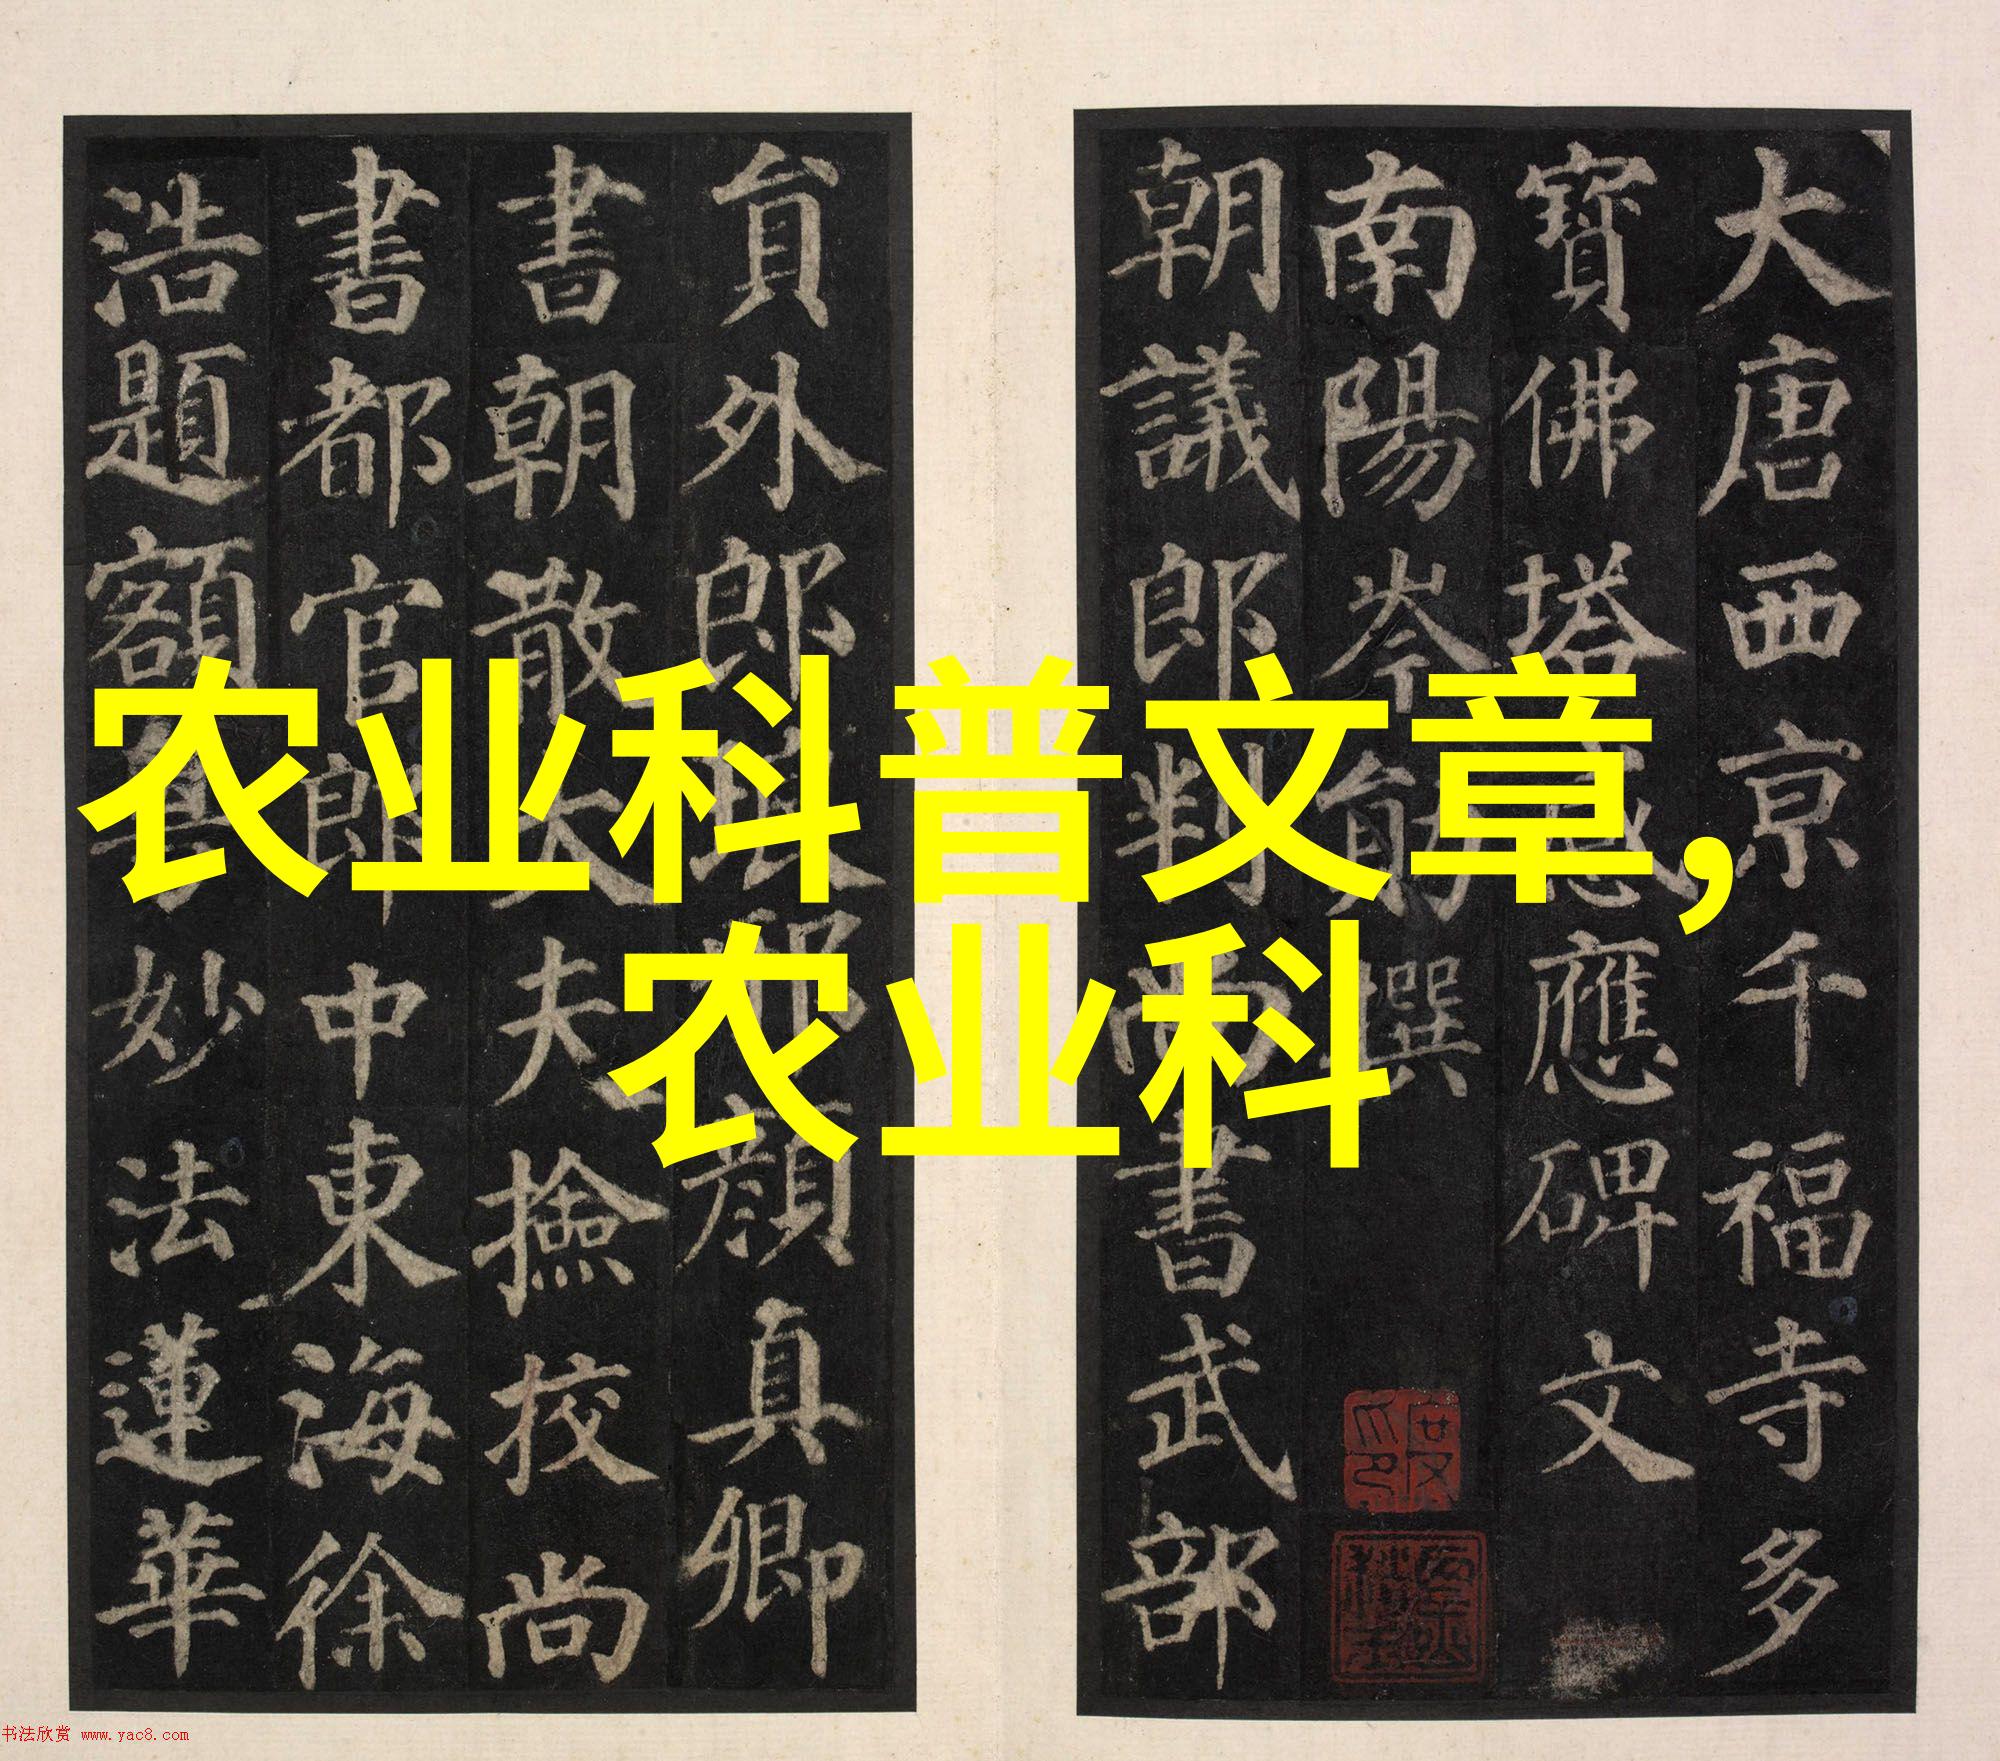 大唐西京千福寺多
寶佛塔感應碑文
南陽岑勛撰
朝議郎判尚書武部
貟外郎琅邪顏真卿
書朝散大夫撿挍尚
書都官郎中東海徐
浩題額
妙法蓮華
农业科普文章,
农业科
书法欣赏 www.yac8.com